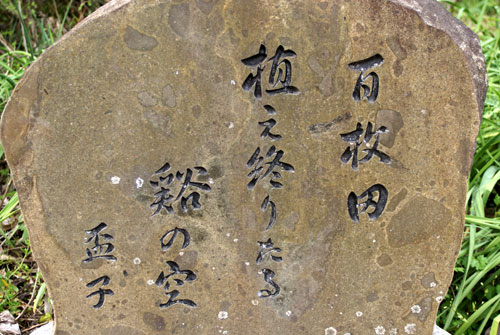 百枚田
植え終りたる
谿の空
盃子